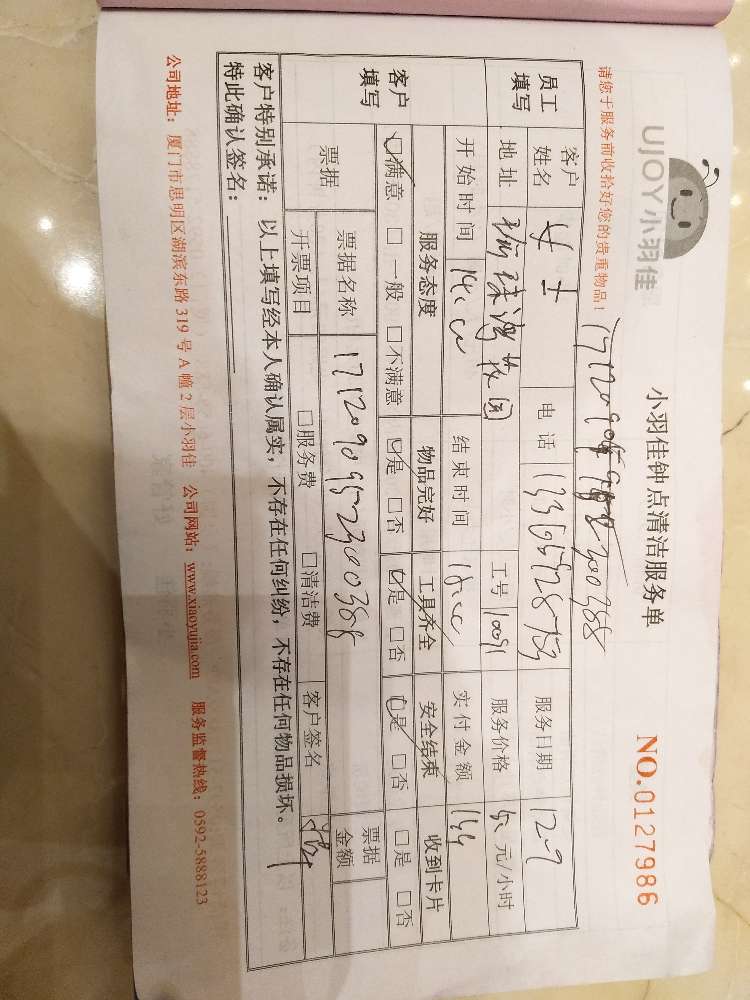 UJOY小羽佳
小羽佳钟点清洁服务单
NO.0127986
请您于服务前收拾好您的贵重物品！
员工填写
客户姓名
女士
电话
服务日期
12-9
地址
花园
工号
1009
服务价格
元/小时
开始时间
结束时间
实付金额
客户填写
服务态度
物品完好
工具齐全
安全结束
收到卡片
☑满意 □一般 □不满意
☑是 □否
☑是 □否
☑是 □否
□是 □否
票据
票据名称
1712090952300388
票据金额
开票项目
□服务费 □清洁费
客户签名
客户特别承诺：以上填写经本人确认属实，不存在任何纠纷，不存在任何物品损坏。
特此确认签名：
公司地址：厦门市思明区湖滨东路319号A幢2层小羽佳 公司网站：www.xiaoyujia.com 服务监督热线：0592-5888123